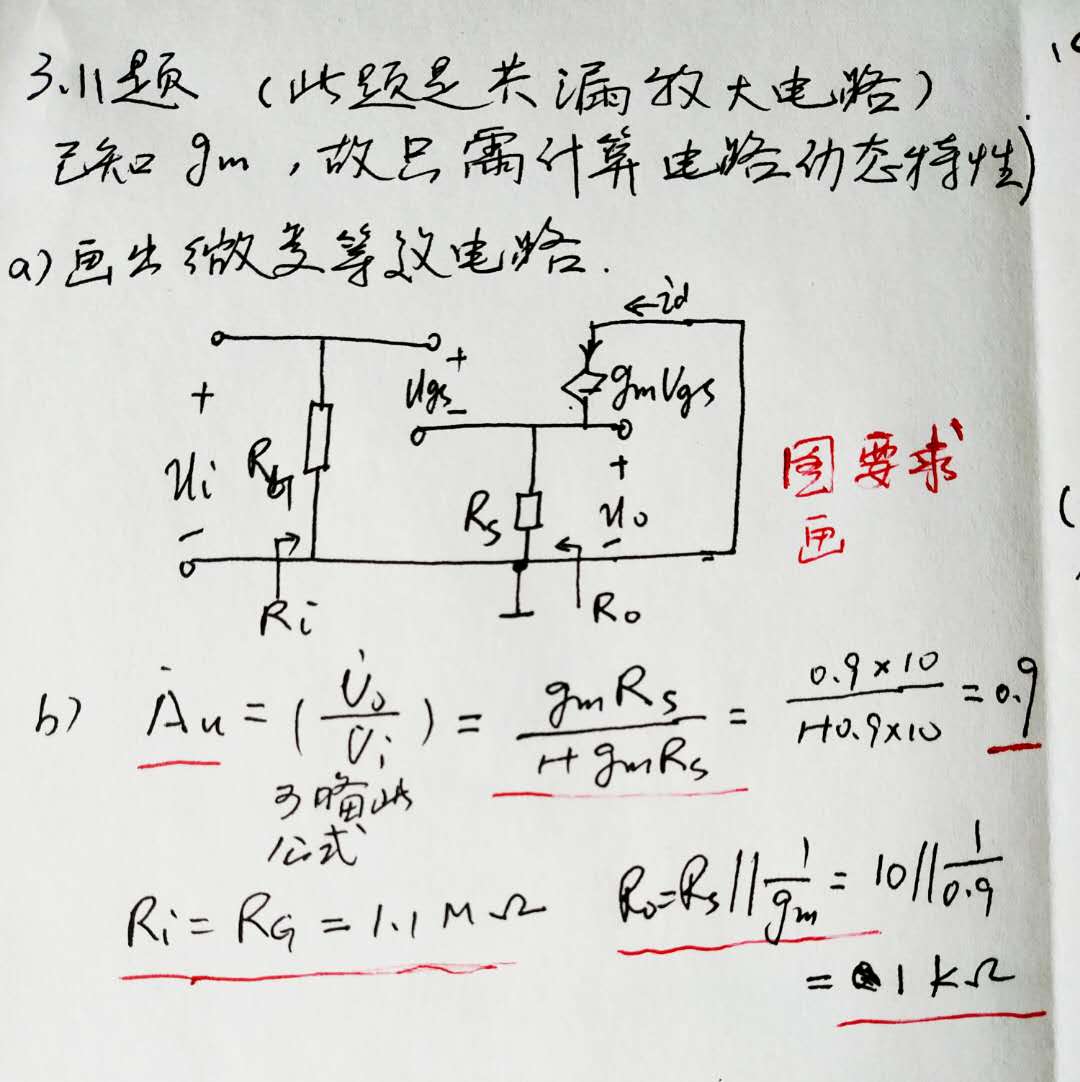 3.11题 (此题是共漏放大电路)
已知 gm , 故只需计算电路动态特性)
a) 画出微变等效电路.
←id
+ Ugs - gmUgs
+ Ui - RG Rs + Uo -
图要求
画
Ri Ro
b) Ȧu = (U̇o/U̇i) = gmRs/(1+gmRs) = 0.9×10/(1+0.9×10) = 0.9
公式
Ri = RG = 1.1 MΩ
Ro=Rs||1/gm = 10||1/0.9
= 1 kΩ